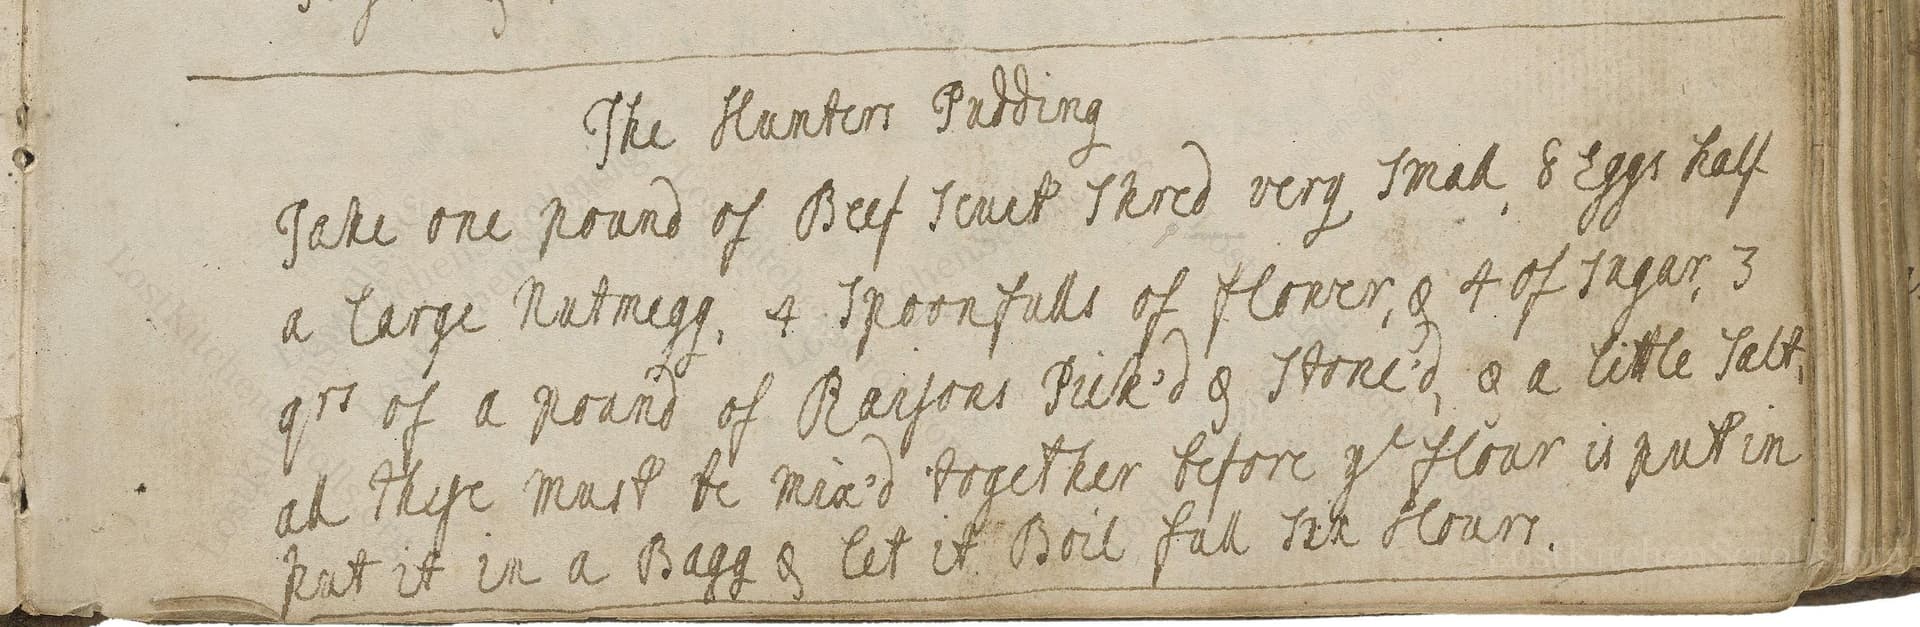 The Hunters Pudding
Take one pound of Beef Seuet Shred very Small, 8 Eggs half
a large Nutmegg, 4 Spoonfulls of flower, & 4 of Sugar, 3
qrs of a pound of Raisons Pick'd & Stone'd, & a little Salt,
all these must be mix'd together before ye flour is put in
put it in a Bagg & let it Boil full Six Hours.
LostKitchenScrolls.com